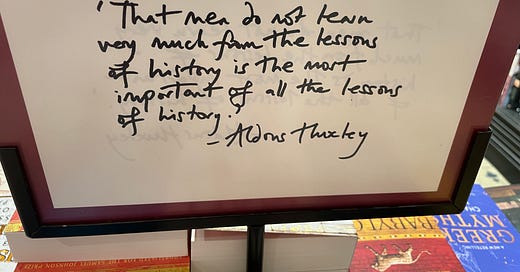 'That men do not learn
very much from the lessons
of history is the most
important of all the lessons
of history.'
- Aldous Huxley
GREE
MYTH
BABYL
A NEW RETELLING
SAMUEL JOHNSON PRIZE